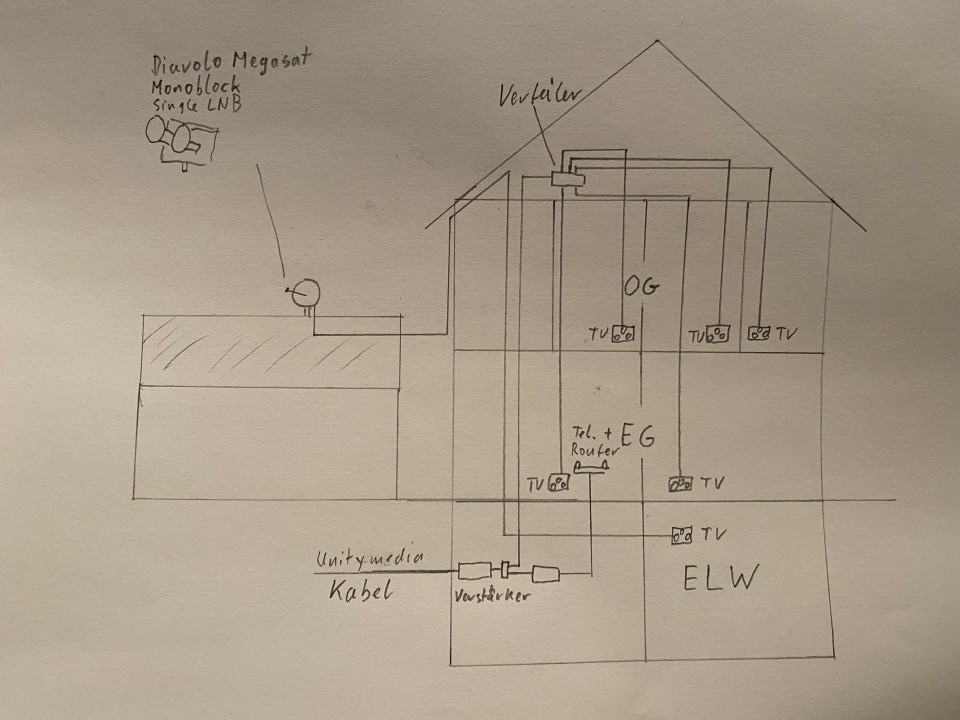 Diavolo Megasat
Monoblock
Single LNB
Verteiler
OG
TV
TV
TV
Tel. +
Router
EG
TV
TV
TV
Unitymedia
Kabel
Verstärker
ELW